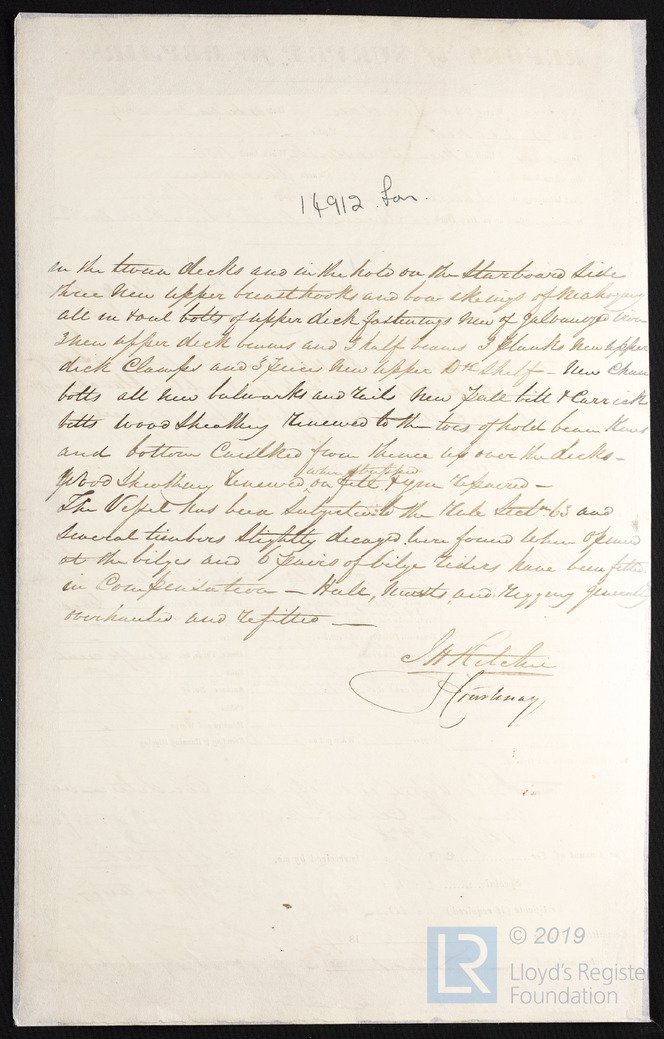 14912 Lon.
in the tween decks and in the hold on the Starboard Side
three New upper breasthooks and bow ekeings of Mahogany
all in & out bolts of upper deck fastenings New of Galvanized Iron
New upper deck beams and 3 half beams 3 planks New upper
deck Clamps and 3 pieces New upper Dk Shelf - New Chain
bolts all new bulwarks and rails New Pall bitt & Carrick
bitts Wood Sheathing renewed to the toes of hold beam Knees
and bottom Caulked from thence up over the decks -
when stripped
Wood Sheathing renewed on felt & repaired -
The Vessel has been Subjected to the Rule Sectn 63 and
Several timbers Slightly decayed were found when opened
at the bilges and 6 pairs of bilge riders have been fitted
in Compensation - Hull, Masts, and Rigging generally
overhauled and refitted -
J H Ritchie
J Courtenay
LR
© 2019
Lloyd's Register
Foundation